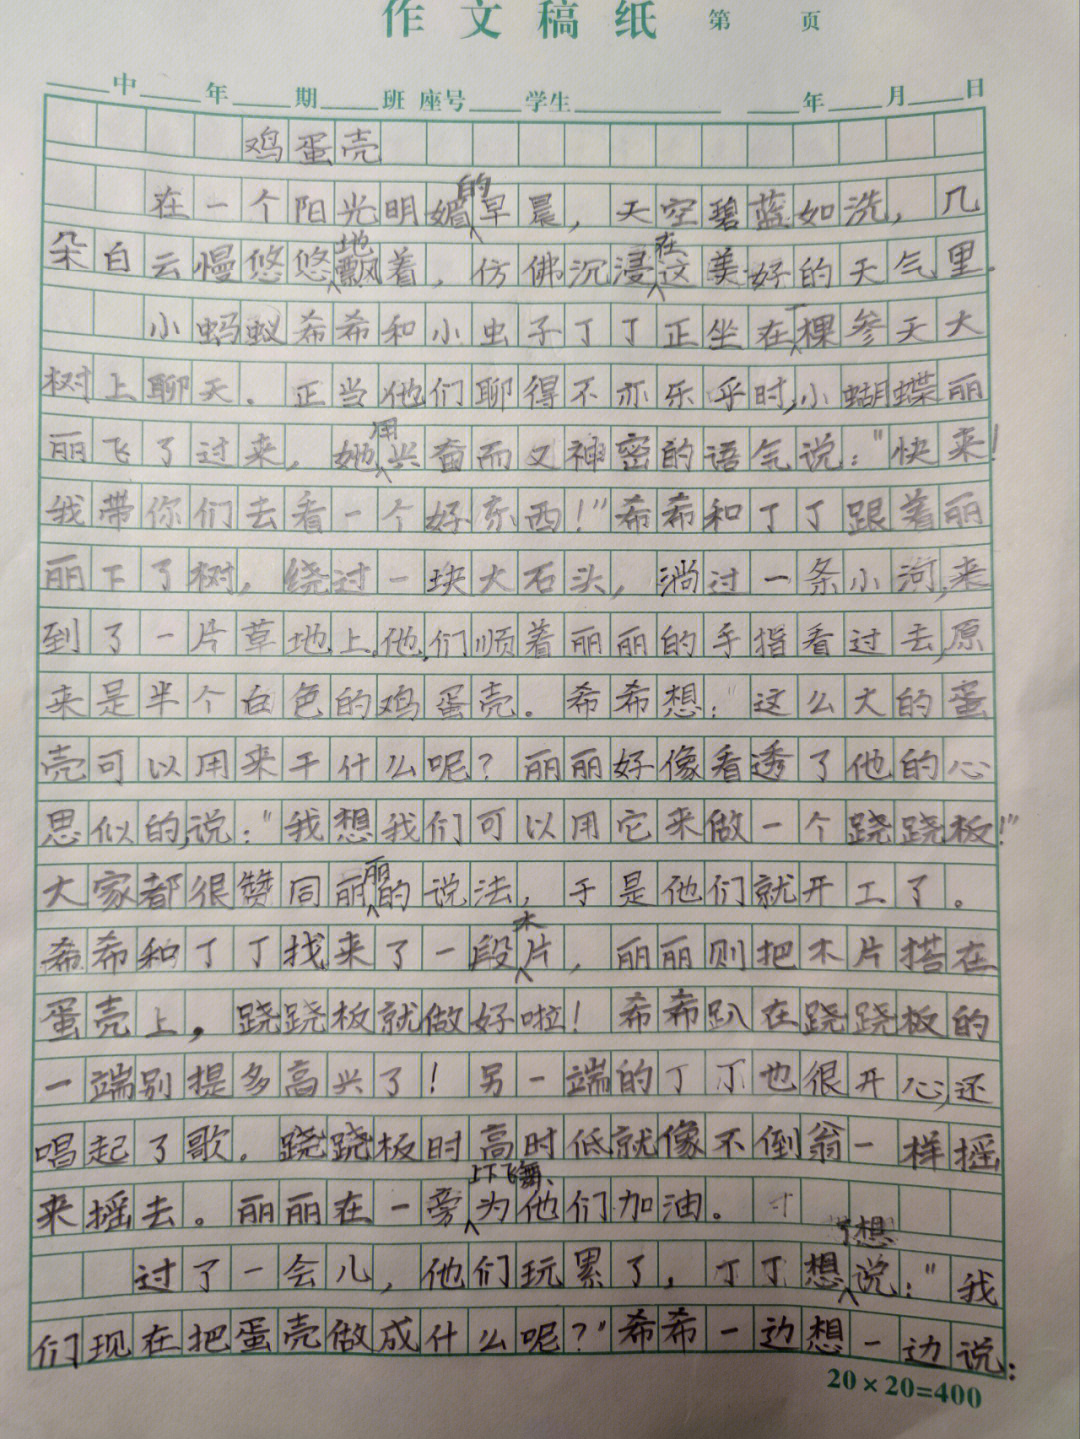 作文稿纸 第 页
中 年 期 班 座号 学生 年 月 日
鸡蛋壳
在一个阳光明媚的早晨，天空碧蓝如洗，几
朵白云慢悠悠地飘着，仿佛沉浸在这美好的天气里.
小蚂蚁希希和小虫子丁丁正坐在一棵参天大
树上聊天．正当他们聊得不亦乐乎时，小蝴蝶丽
丽飞了过来，她用兴奋而又神密的语气说："快来！
我带你们去看一个好东西！"希希和丁丁跟着丽
丽下了树，绕过一块大石头，淌过一条小河，来
到了一片草地上．他们顺着丽丽的手指看过去，原
来是半个白色的鸡蛋壳。希希想："这么大的蛋
壳可以用来干什么呢？丽丽好像看透了他的心
思似的，说："我想我们可以用它来做一个跷跷板！"
大家都很赞同丽丽的说法，于是他们就开工了。
希希和丁丁找来了一段木片，丽丽则把木片搭在
蛋壳上，跷跷板就做好啦！希希趴在跷跷板的
一端别提多高兴了！另一端的丁丁也很开心，还
唱起了歌．跷跷板时高时低就像不倒翁一样摇
来摇去。丽丽在一旁上下飞舞、为他们加油。
过了一会儿，他们玩累了，丁丁想了想说："我
们现在把蛋壳做成什么呢？"希希一边想一边说：
20×20=400